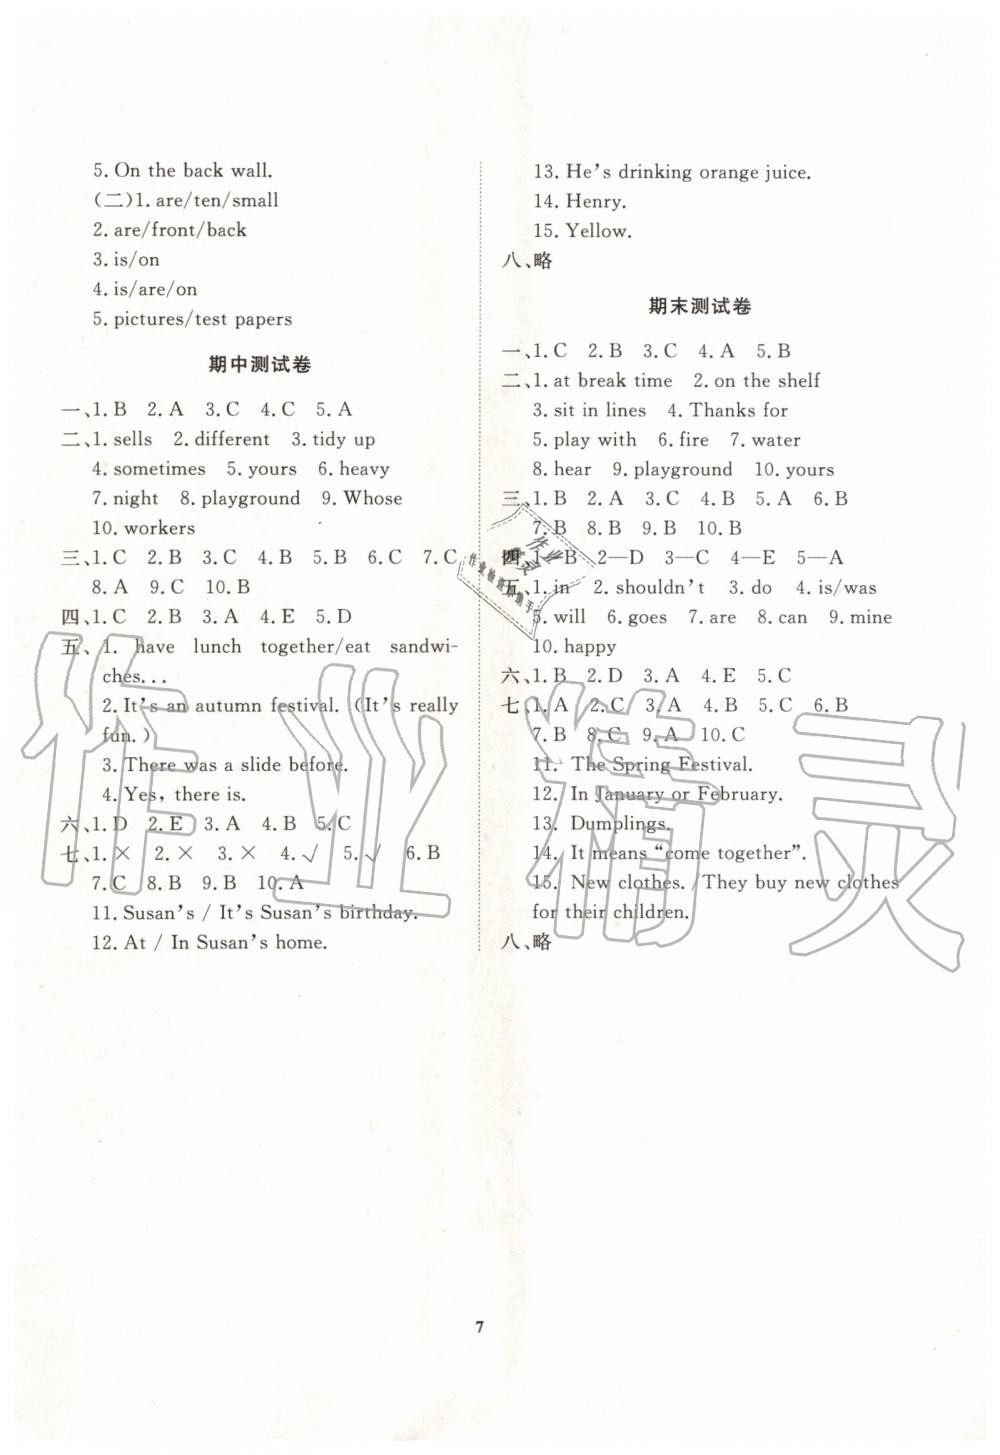 5. On the back wall.
(二)1. are/ten/small
2. are/front/back
3. is/on
4. is/are/on
5. pictures/test papers
期中测试卷
一、1. B 2. A 3. C 4. C 5. A
二、1. sells 2. different 3. tidy up
4. sometimes 5. yours 6. heavy
7. night 8. playground 9. Whose
10. workers
三、1. C 2. B 3. C 4. B 5. B 6. C 7. C
8. A 9. C 10. B
四、1. C 2. B 3. A 4. E 5. D
五、1. have lunch together/eat sandwi-
ches...
2. It's an autumn festival. (It's really
fun.)
3. There was a slide before.
4. Yes, there is.
六、1. D 2. E 3. A 4. B 5. C
七、1. × 2. × 3. × 4. √ 5. √ 6. B
7. C 8. B 9. B 10. A
11. Susan's / It's Susan's birthday.
12. At / In Susan's home.
13. He's drinking orange juice.
14. Henry.
15. Yellow.
八、略
期末测试卷
一、1. C 2. B 3. C 4. A 5. B
二、1. at break time 2. on the shelf
3. sit in lines 4. Thanks for
5. play with 6. fire 7. water
8. hear 9. playground 10. yours
三、1. B 2. A 3. C 4. B 5. A 6. B
7. B 8. B 9. B 10. B
四、1—B 2—D 3—C 4—E 5—A
五、1. in 2. shouldn't 3. do 4. is/was
5. will 6. goes 7. are 8. can 9. mine
10. happy
六、1. B 2. D 3. A 4. E 5. C
七、1. A 2. C 3. A 4. B 5. C 6. B
7. B 8. C 9. A 10. C
11. The Spring Festival.
12. In January or February.
13. Dumplings.
14. It means "come together".
15. New clothes. /They buy new clothes
for their children.
八、略
作业精灵
7